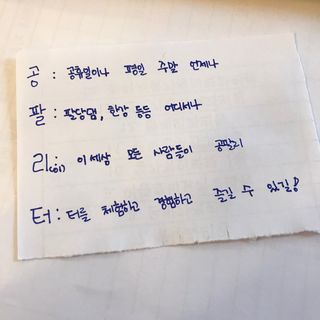 공 : 공휴일이나 평일 주말 언제나
팔 : 팔당댐, 한강 등등 어디서나
리(이) : 이 세상 모든 사람들이 공팔리
터 : 터를 체험하고 경험하고 즐길 수 있길!